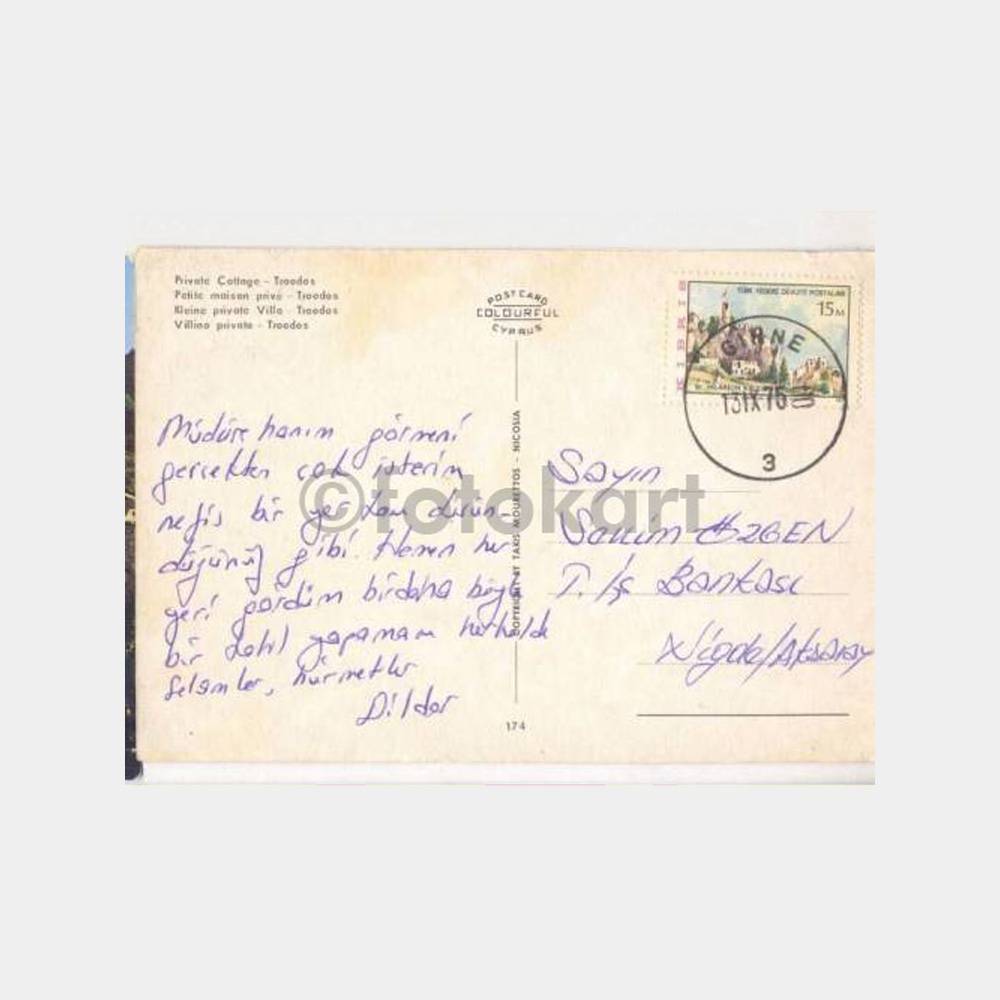 Private Cottage - Troodos
Petite maison privé - Troodos
Kleine private Villa - Troodos
Villino privato - Troodos
POSTCARD
COLOURFUL
CYPRUS
KIBRIS
TÜRK FEDERE DEVLETİ POSTALARI
15 M
GİRNE
13 IX 76
3
Müdüre hanım görmeni
gerçekten çok isterim
nefis bir yer tam düşün-
düğünüz gibi. Hemen her
yeri gördüm birdaha böyle
bir tatil yapamam herhalde
Selamlar, hürmetler
Dildar
COPYRIGHT BY TAKIS MOURETTOS - NICOSIA
©fotokart
Sayın
ÖZGEN
T. İş Bankası
Niğde/Aksaray
174